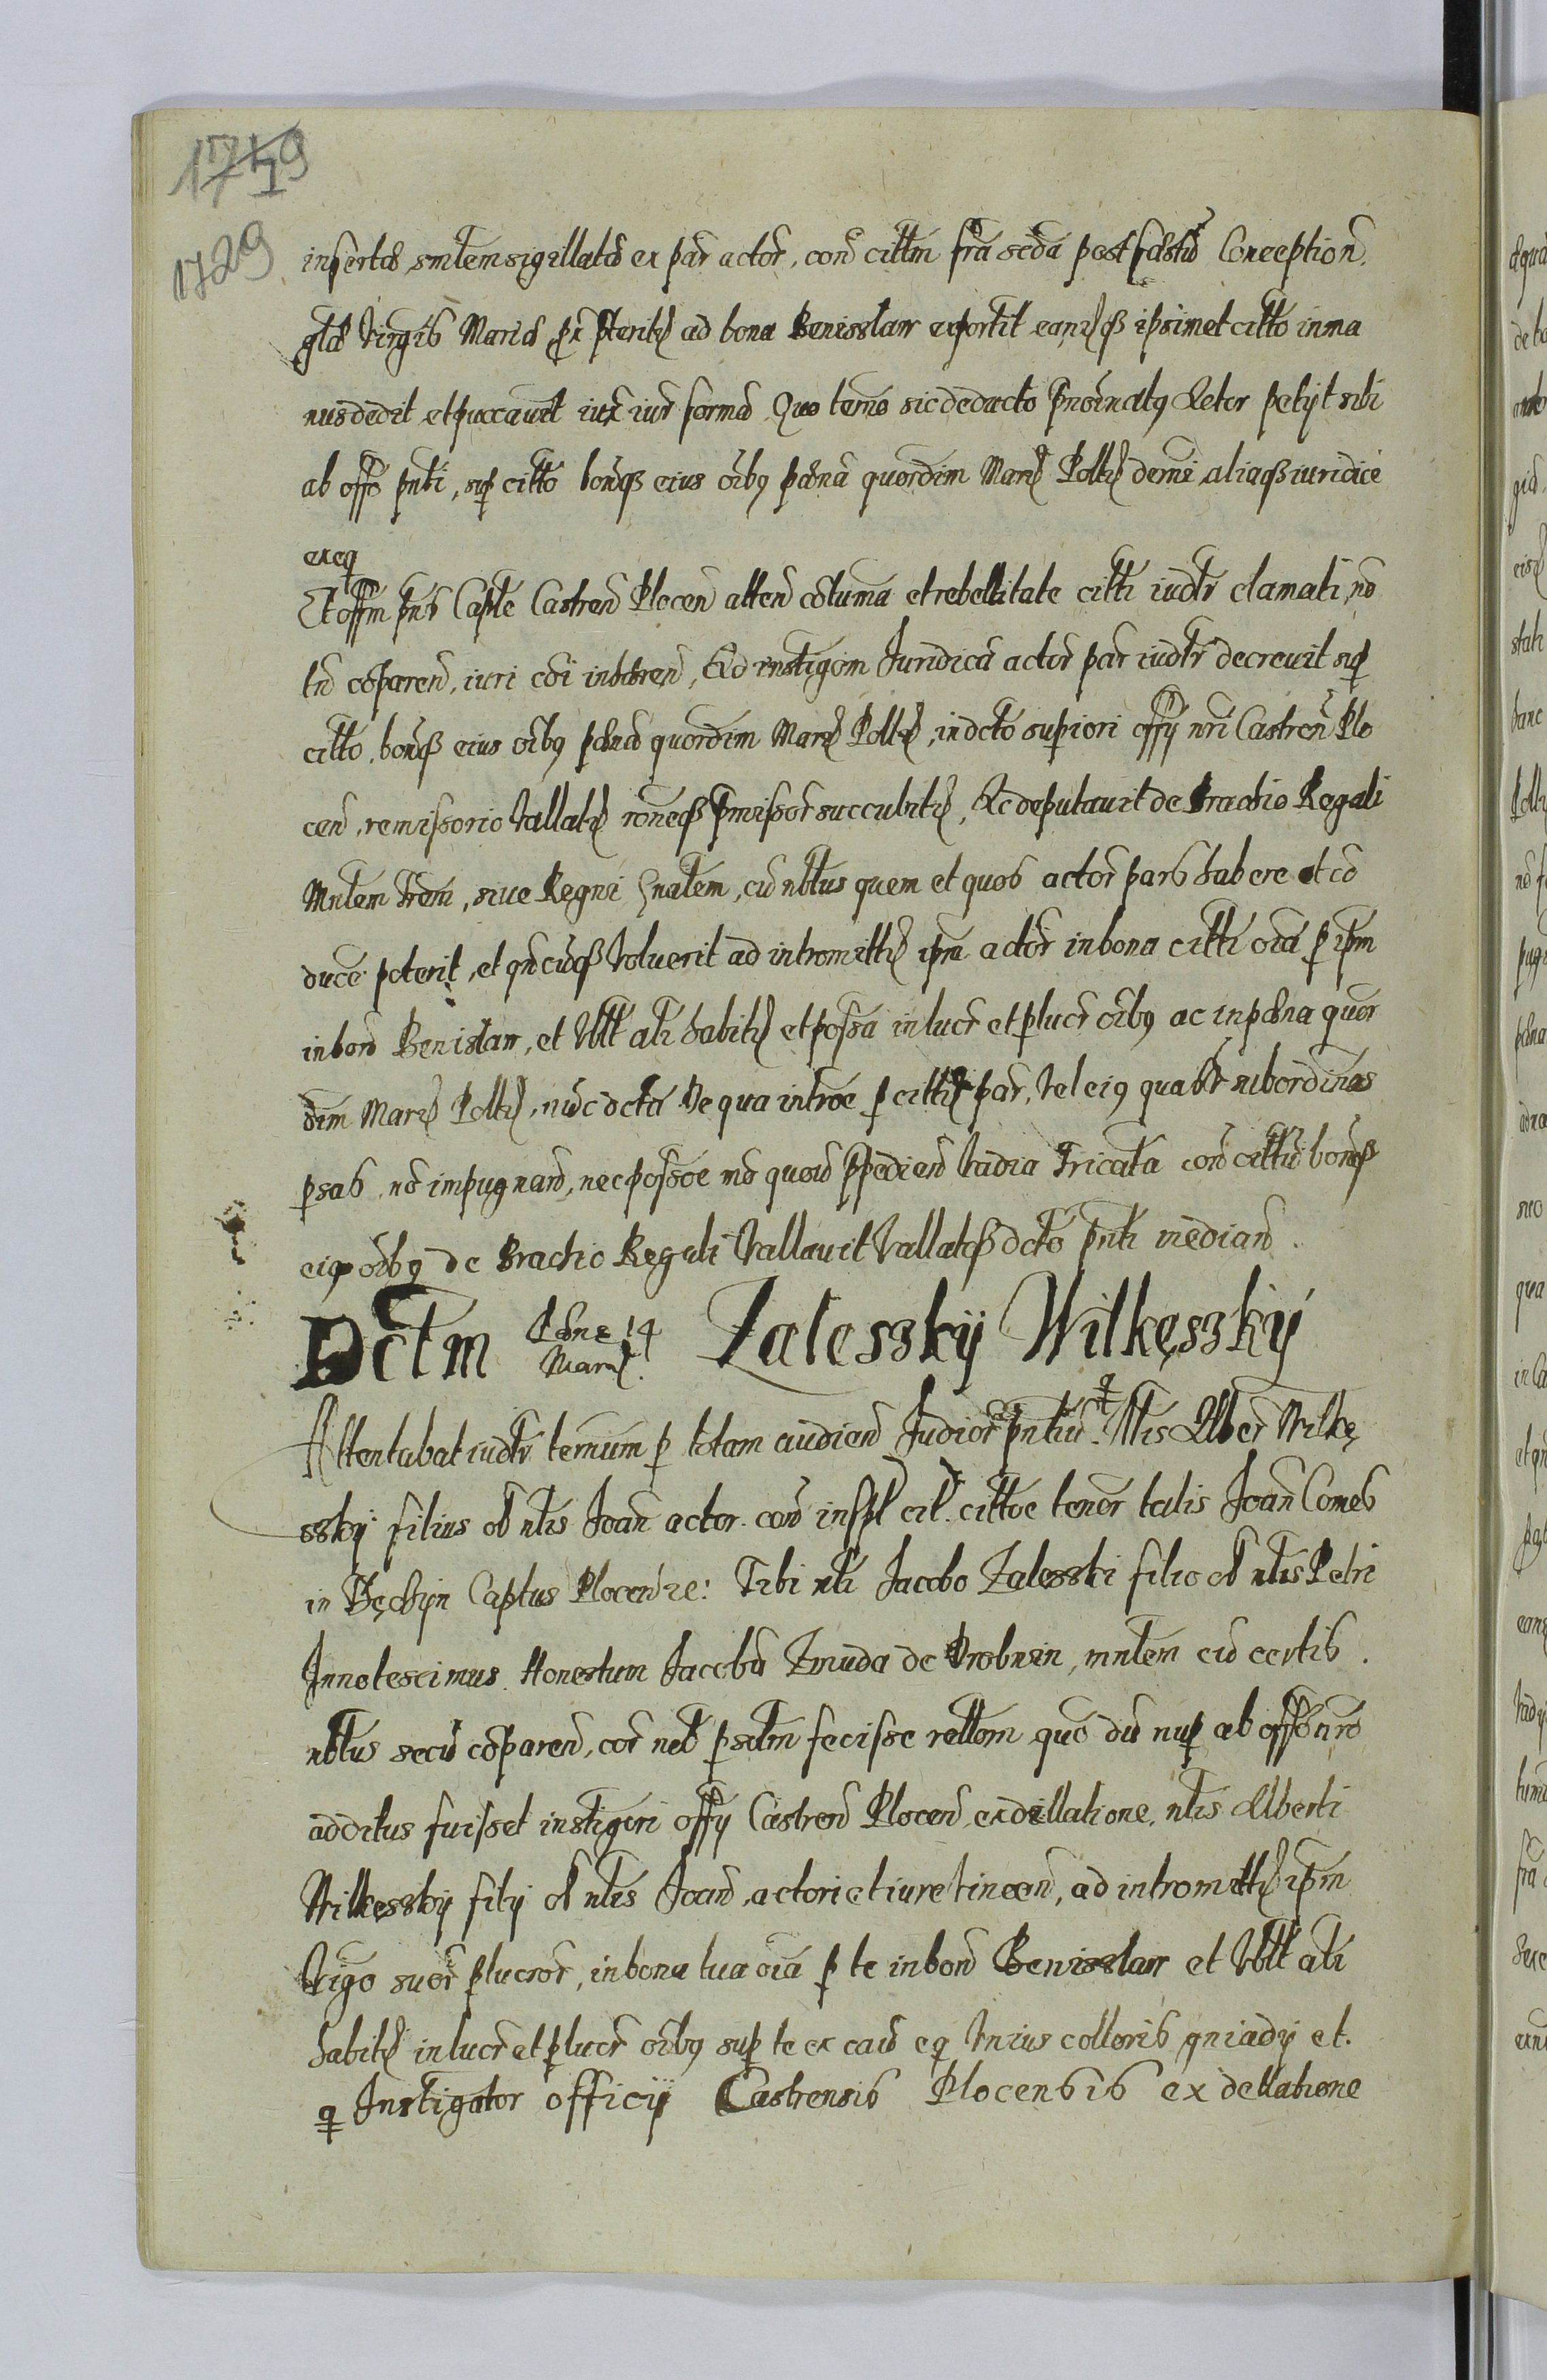 1719
1729
insertas smltem sigillatas ex par actor, con cittm fra scda post festū Conception
glæ Virgis Mariæ pr pterith ad bona Benisslaw exportit eandq ipsimet citto in ma
nus dedit et puccauit iux iur formā Quo termo sic deducto Pnoīnatq Actor petijt sibi
ab offo pnti, sup citto bonisq eius oībq pæna quordim Mar Polk demi aliasq iuridice
exeq
Et offm pns Capte Castren Plocen atten cōtuma et rebellitate citti iudtr clamati, nō
tn cōparen, iuri cōi inhæren, Ad instigom Juridicā actor par iudtr decreuit sup
citto, bonisq eius oībq pænā quordim Mar Polk, in dcto superiori offij nri Castren Plo
cen, remissorio Vallath roneq pmissor succubith, Ac deputauit de Brachio Regali
Mntem Trem, siue Regni gnalem, cū nbtus quem et quos actor pars habere et cō
duce poterit, et qncuq Voluerit ad intromitth ipm actor in bona citti oīa p ipm
in bon Benislaw, et Vblt ali habith et possa in lucr et plucr oībq ac in pæna quor
dim Mar Polk, nūc dcta De qua introe p citth par, Vel eiq quasvr subordinas
psas, nō impugnan, nec possōe mo quow ppedien Vadia Tricata con cittū bonisq
eiq oībq de Brachio Regali Vallauit Vallatq dcto pnti median.
Dctm Pæna 14 Mar. Zalesskÿ Wilkęsskÿ
Attentabat iudtr termum p totam audien Judior pntiū. Nlis Alber Wilkę
sskÿ filius ol nlis Joan actor. con infpl cit. cittoe tenor talis Joan Comes
in Tęchÿn Captus Plocen ze: Tibi nli Jacobo Zalesski filio ol nlis Petri
Innotescimus. Honestum Jacobū Zmuda de Drobnin, mntem cū certis
nbtus secū cōparen, cor nob psdtm fecisse reltom quō dū nup ab offo nro
additus fuisset instigri offij Castren Plocen, ex dellatione, nlis Alberti
Wilkęsskÿ filij ol nlis Joan, actori et iure Vincen, ad intromitth ipm
Vigo suor plucror, in bona tua oīa p te in bon Benisslaw et Vblt ali
habith in lucr et plucr oībq sup te ex cau eq Vnius colloris gniadÿ et.
Instigator officÿ Castrensis Plocensis ex dellatione